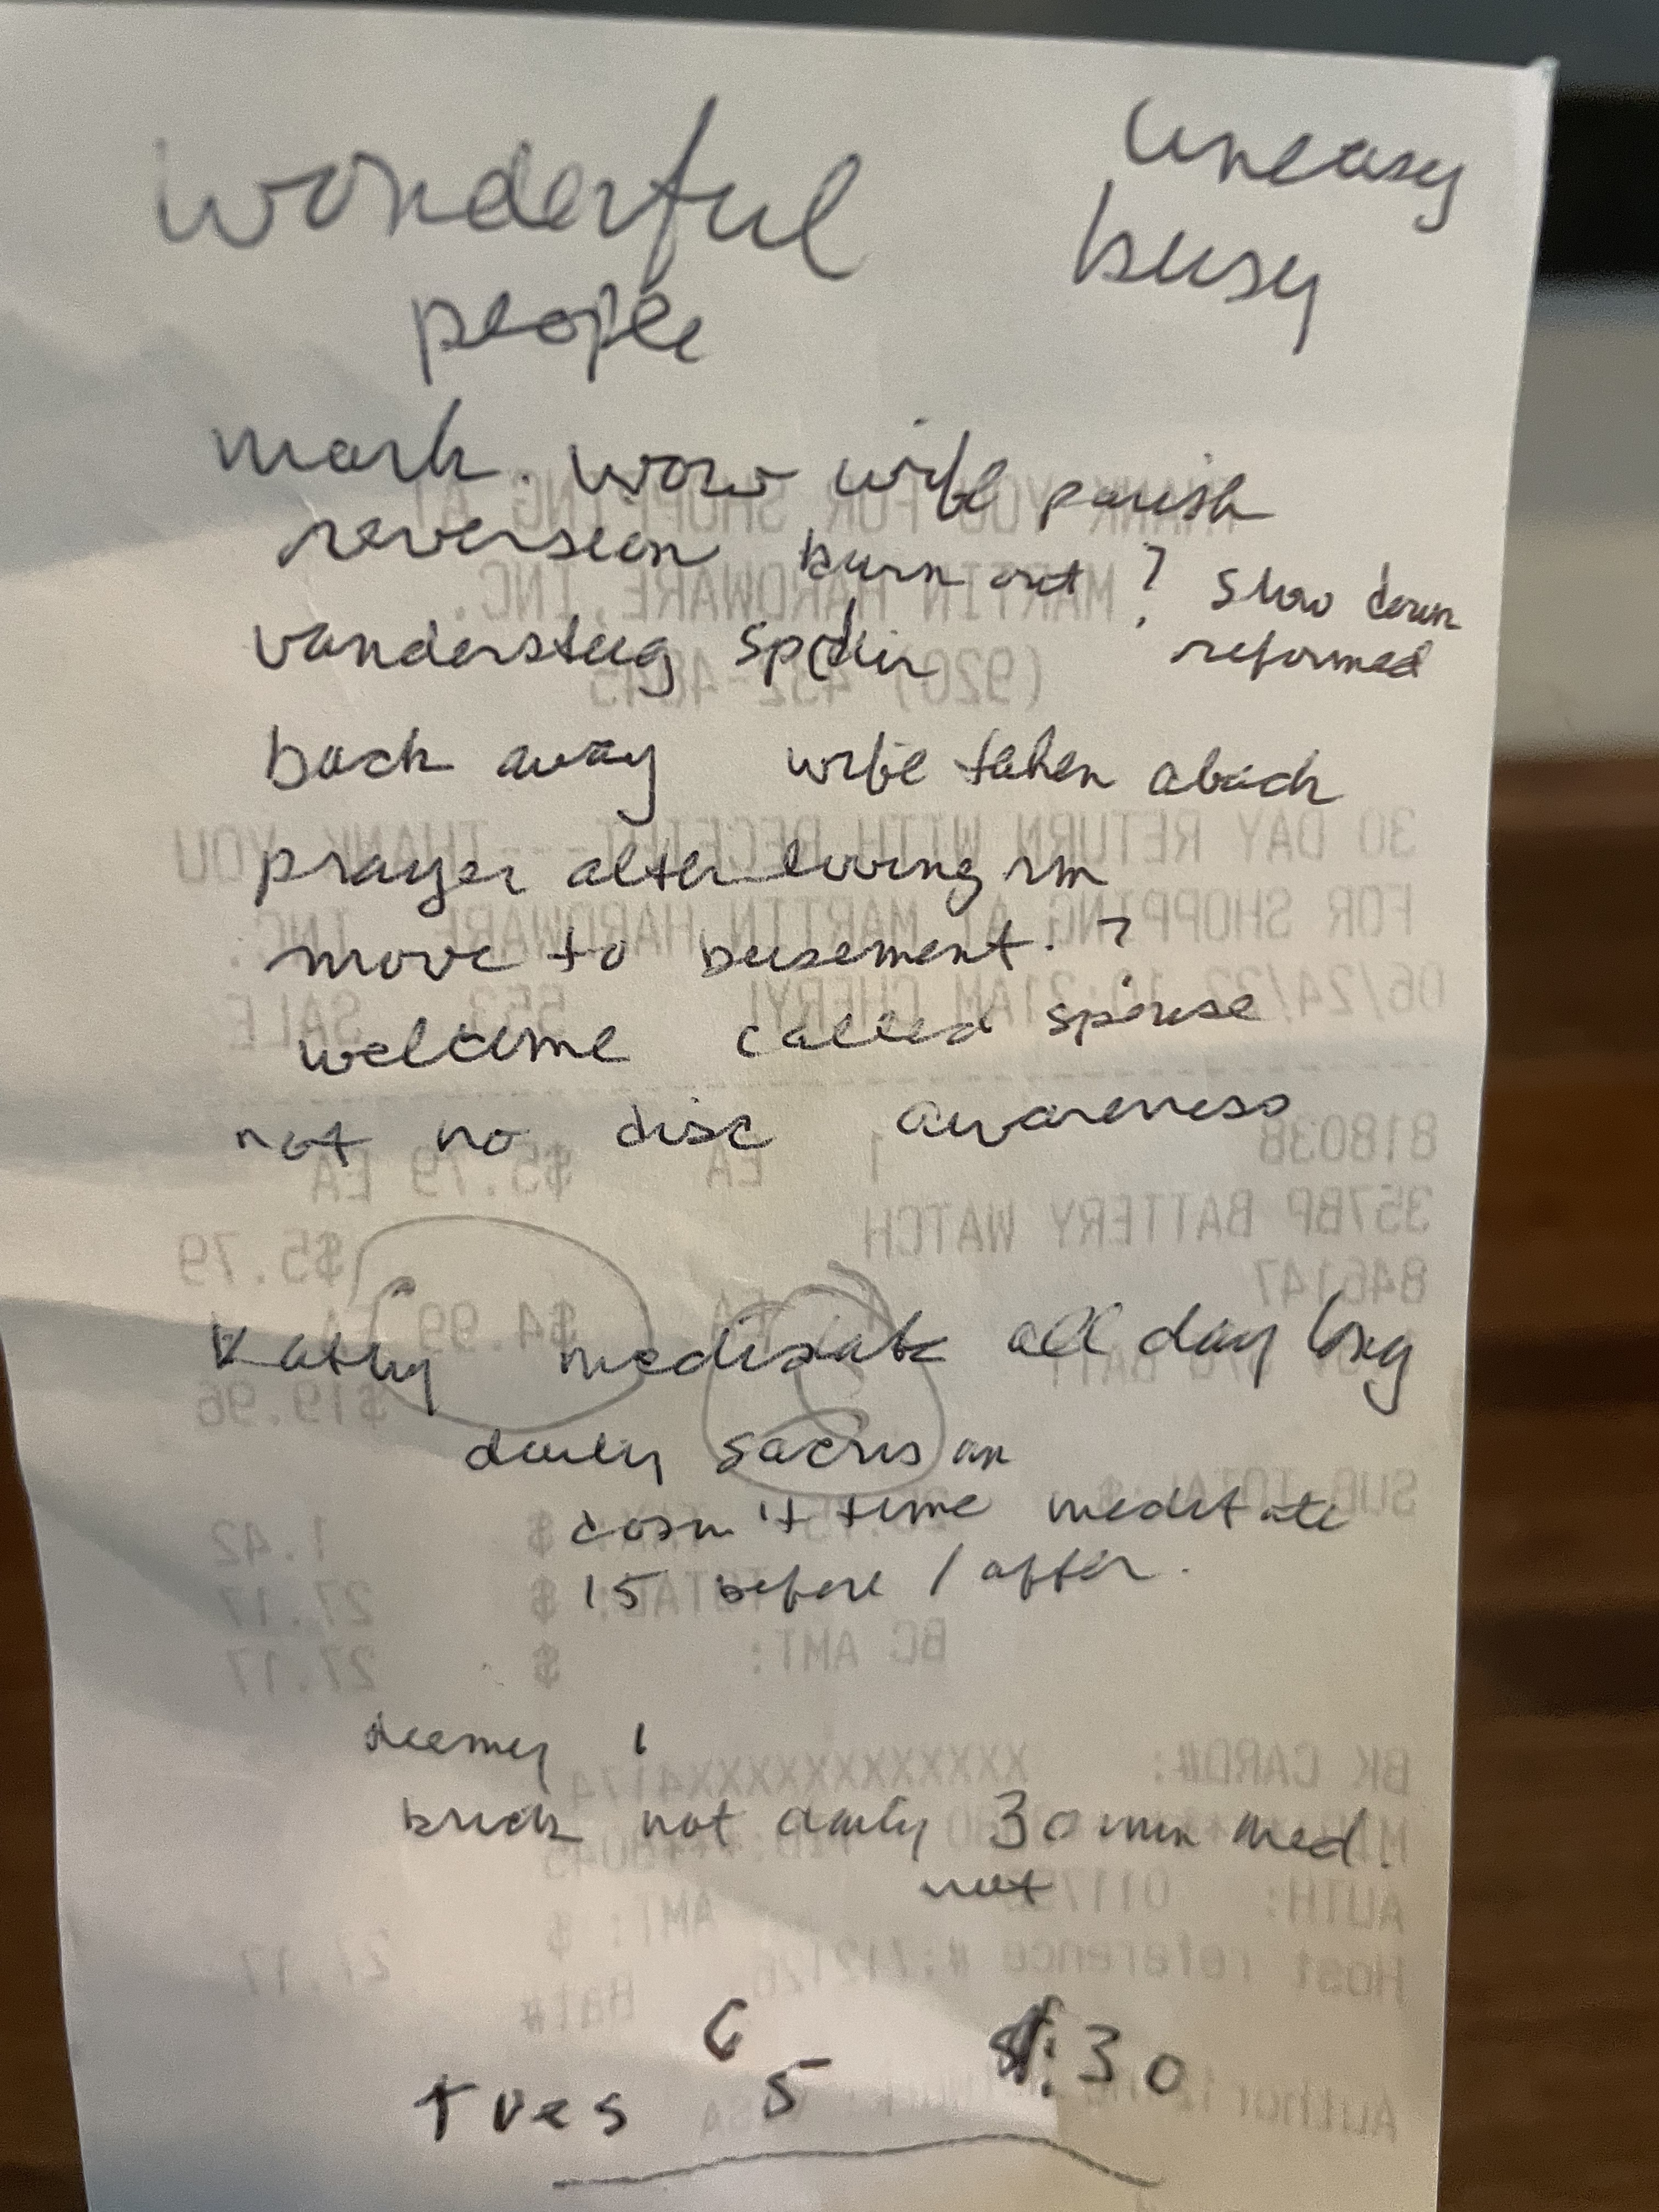 wonderful uneasy
people busy
mark. wow wife parish
reversion burn out? slow down
vandersteeg reformed
back away wife taken aback
prayer alter living rm
move to basement.?
welcome called spouse
not no disc awareness
Kathy meditate all day long
daily sacris an
dosn't time meditate
15 before / after.
not daily 30 min med.
not
6
tues 5 :30
THANK YOU FOR SHOPPING AT
MARTIN HARDWARE, INC.
30 DAY RETURN WITH RECEIPT---THANK YOU
FOR SHOPPING AT MARTIN HARDWARE, INC.
06/24/22 10:21AM CHERYL 553 SALE
818038 1 EA $5.79 EA
357BP BATTERY WATCH $5.79
846147 EA $4.99 EA
BATT $19.96
SUB-TOTAL: $ TAX: $ 1.42
TOTAL: $ 27.17
BC AMT: $ 27.17
BK CARD#: XXXXXXXXXXXX4174
AUTH: AMT: $ 27.17
Host reference #:712126 Bat#